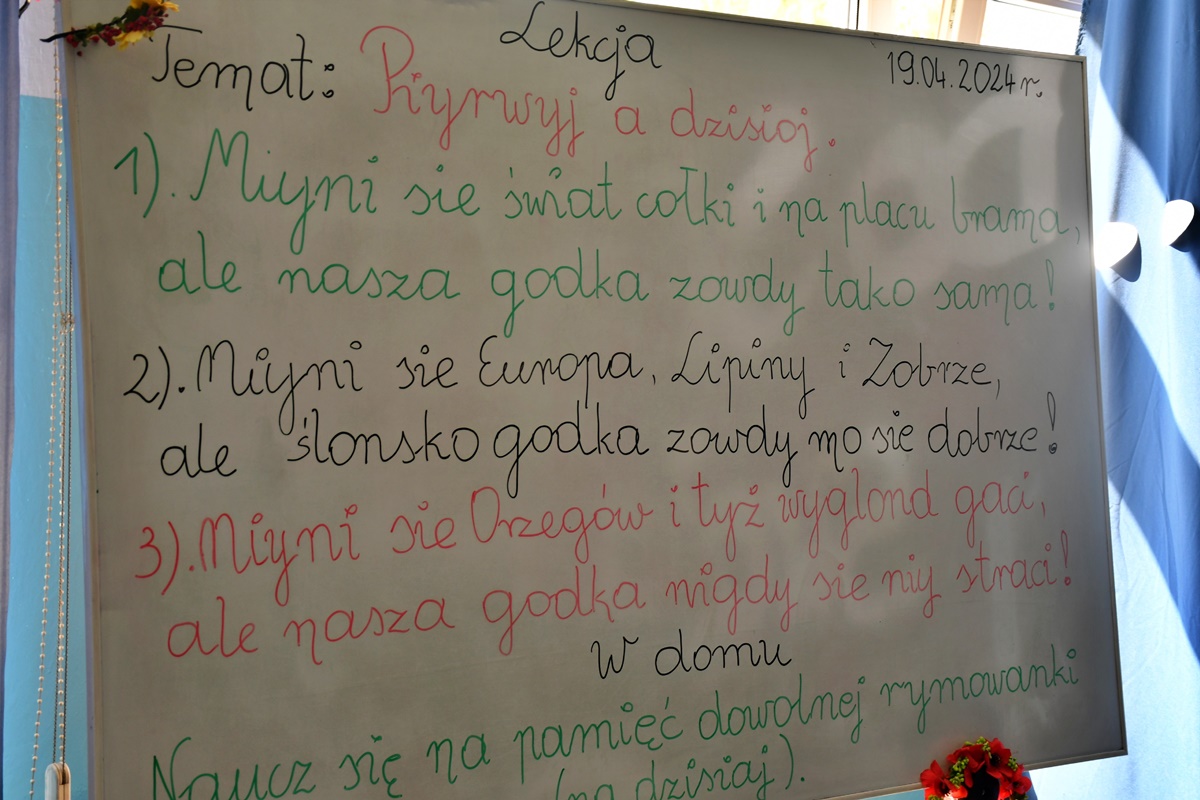 Lekcja
19.04.2024r.
Temat: Piyrwyj a dzisioj.
1). Miyni sie świat cołki i na placu brama,
ale nasza godka zowdy tako sama!
2). Miyni sie Europa, Lipiny i Zobrze,
ale ślonsko godka zowdy mo sie dobrze!
3). Miyni sie Orzegów i tyż wyglond gaci,
ale nasza godka nigdy sie niy straci!
W domu
Naucz się na pamięć dowolnej rymowanki
(na dzisiaj).